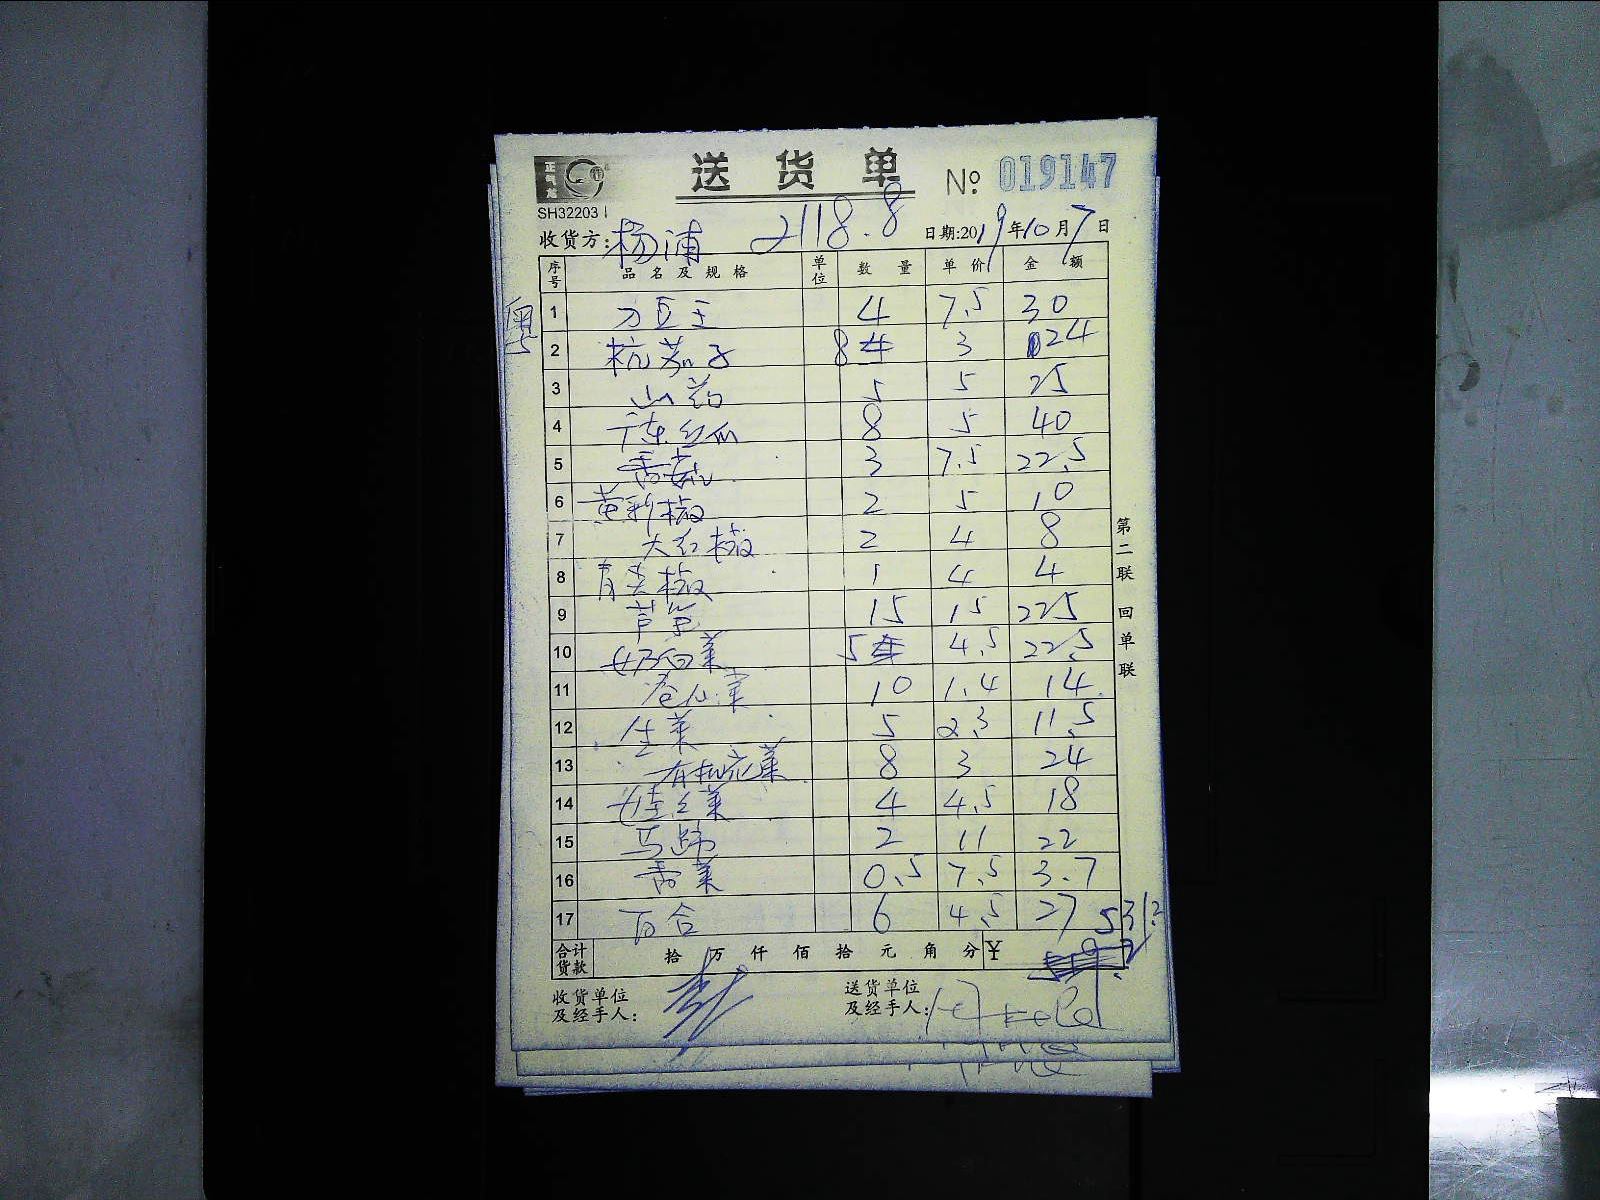 送货单
№ 019147
SH32203
收货方: 杨浦 2118.8 日期:2019年10月7日
序号 品名及规格 单位 数量 单价 金额
粤
1 刀豆王 4 7.5 30
2 杭茄子 8 3 24
3 山药 5 5 25
4 广东丝瓜 8 5 40
5 香菇 3 7.5 22.5
6 黄彩椒 2 5 10
7 大红椒 2 4 8
8 青尖椒 1 4 4
9 芦笋 15 15 225
10 奶白菜 5 4.5 22.5
11 卷心菜 10 1.4 14
12 生菜 5 2.3 11.5
13 有机花菜 8 3 24
14 娃娃菜 4 4.5 18
15 马蹄 2 11 22
16 香菜 0.5 7.5 3.7
17 百合 6 4.5 27
531.2
合计货款 拾 万 仟 佰 拾 元 角 分 ¥
收货单位及经手人:
送货单位及经手人:
第二联 回单联